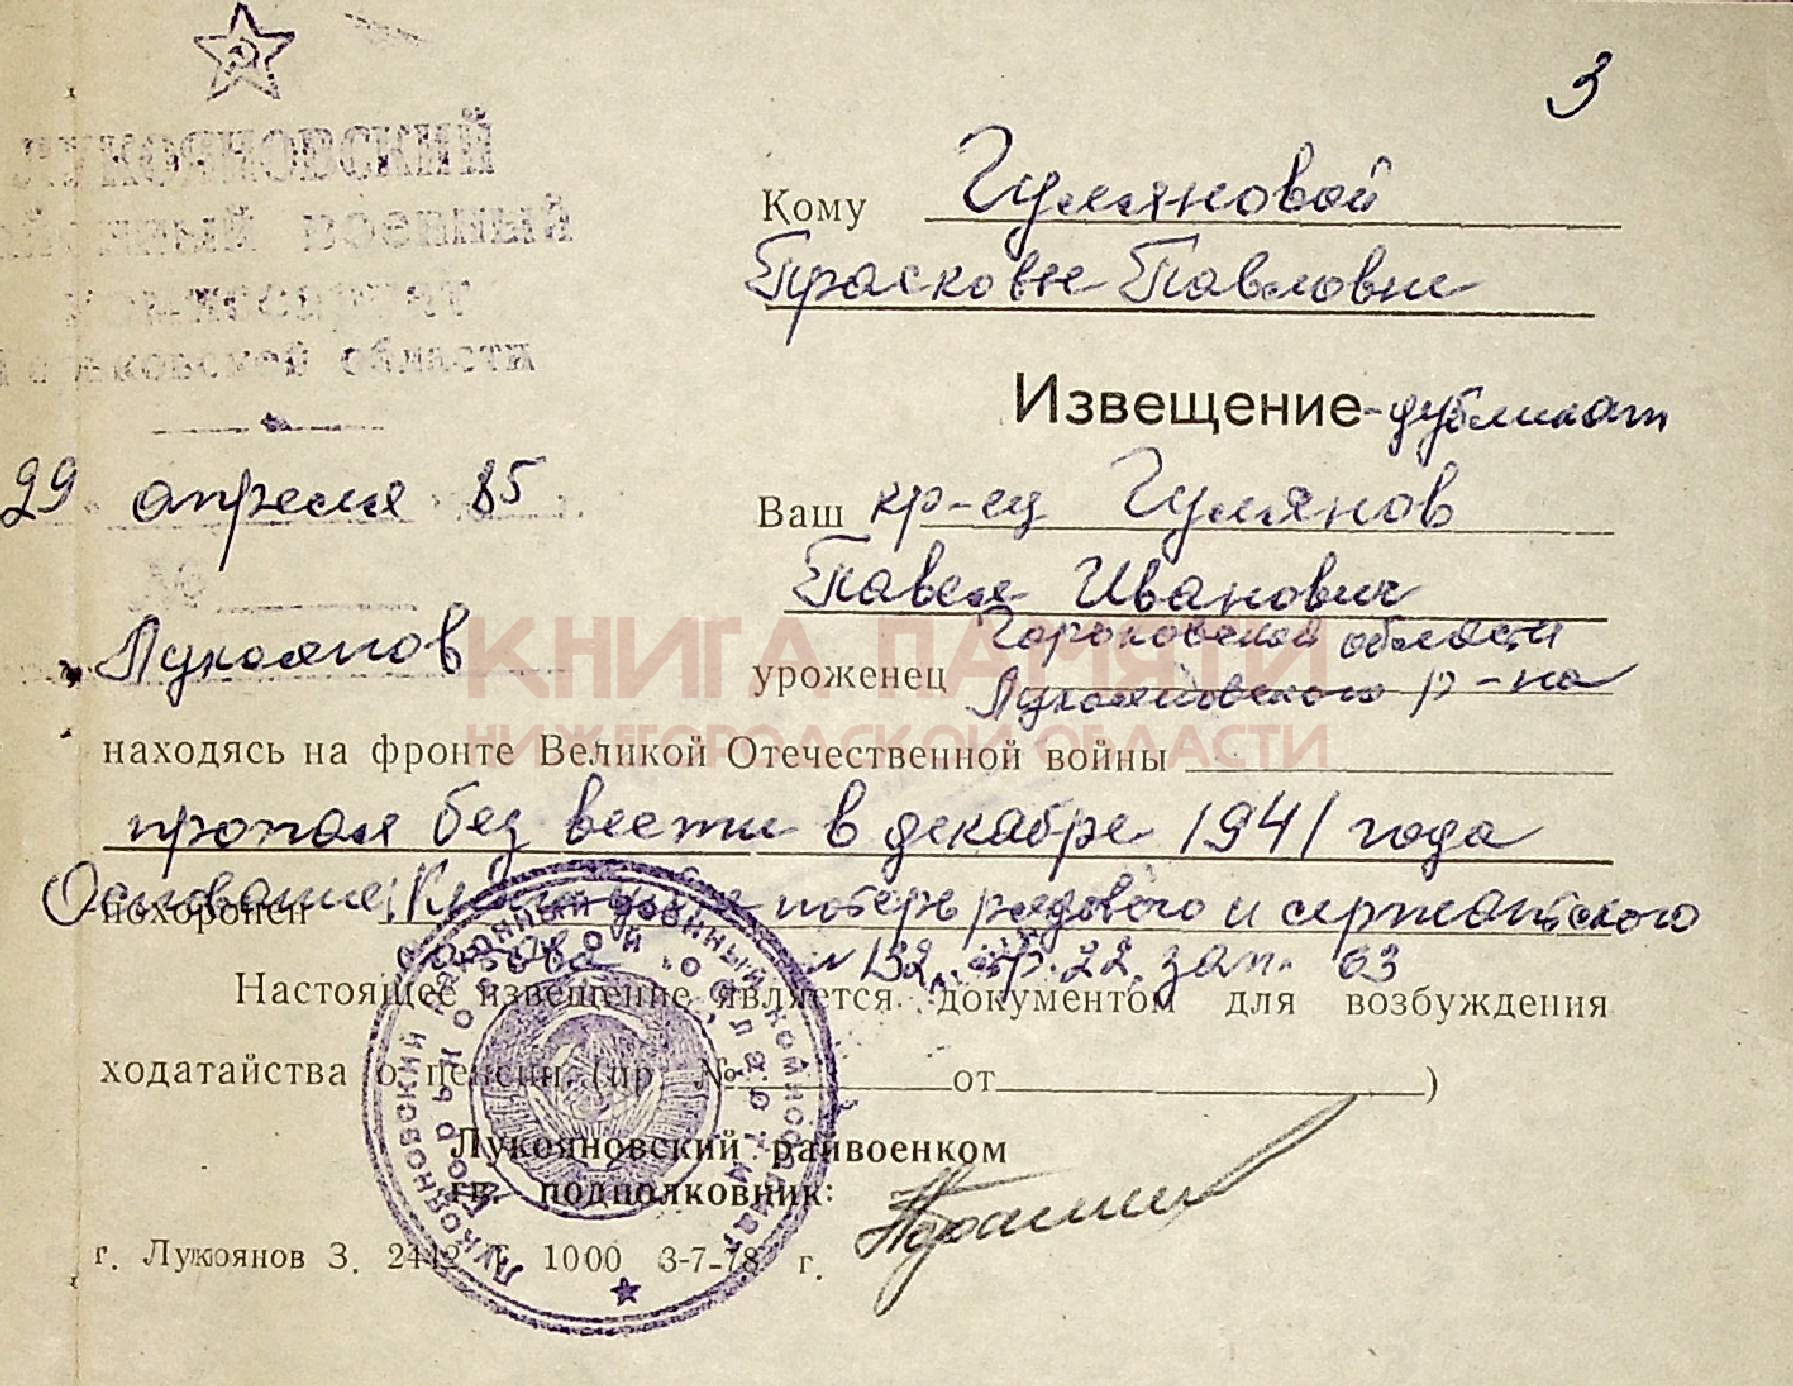 3
Кому Гумяновой
Прасковье Павловне
Извещение - дубликат
29 апреля 85
Ваш кр-ец Гумянов
Павел Иванович
№
Лукоянов
Горьковской области
уроженец Лукояновского р-на
КНИГА ПАМЯТИ
НИЖЕГОРОДСКОЙ ОБЛАСТИ
находясь на фронте Великой Отечественной войны
пропал без вести в декабре 1941 года
Основание: Книга потерь рядового и сержантского
похоронен
состава 152, стр. 22, зап. 63
Настоящее извещение является документом для возбуждения
ходатайства о пенсии (пр. № от )
Лукояновский райвоенком
гв. подполковник:
г. Лукоянов З. 2442 Т. 1000 3-7-78 г.
Лукояновский районный военный комиссариат
Горьковской области